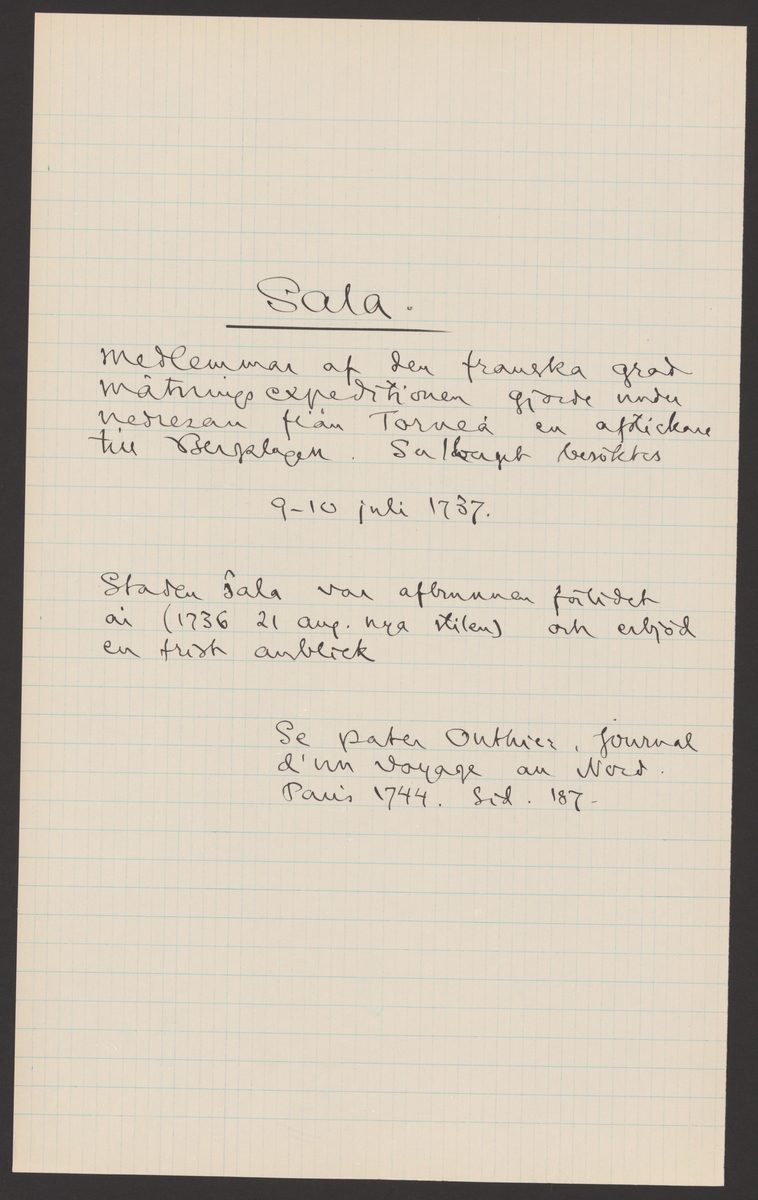 Sala.
Medlemmar af den franska grad
mätningsexpeditionen gjorde under
nedresan från Torneå en afstickare
till Bergslagen. Salbergt besöktes
9-10 juli 1737.
Staden Sala var afbrunnen förlidet
år (1736 21 aug. nya stilen) och erbjöd
en trist anblick
Se pater Outhier, journal
d'un voyage au Nord.
Paris 1744. Sid. 187-